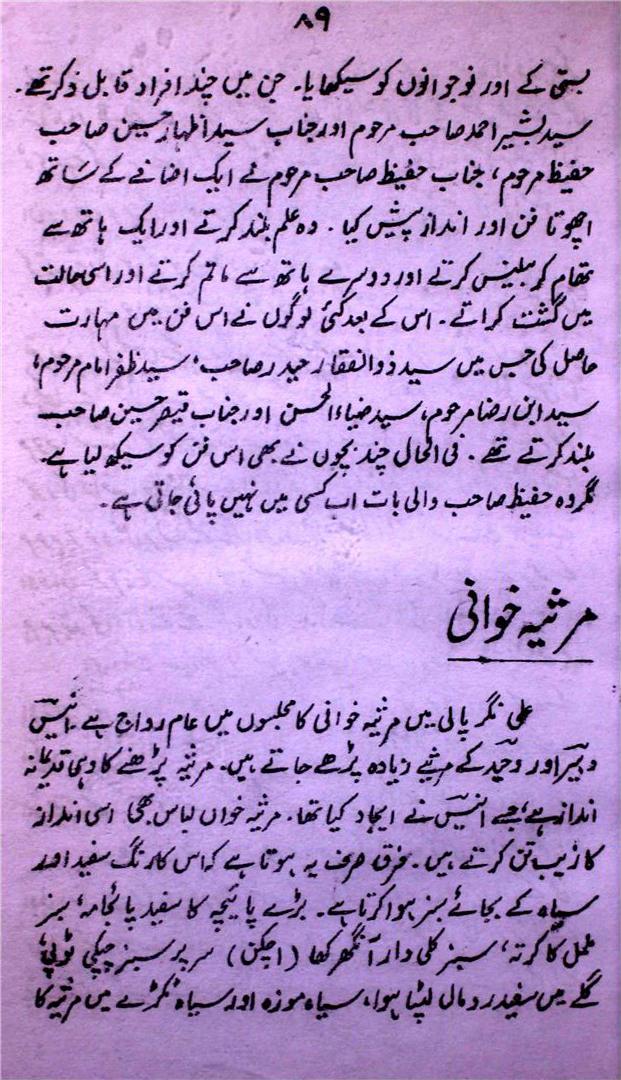 ۸۹
بستی کے اور نوجوانوں کو سیکھایا۔ جن میں چند افراد قابل ذکر تھے۔
سید بشیر احمد صاحب مرحوم اور جناب سید اظہار حسین صاحب
حفیظ مرحوم، جناب حفیظ صاحب مرحوم نے ایک اضافے کے ساتھ
اچھوتا فن اور انداز پیش کیا۔ وہ علم بلند کرتے اور ایک ہاتھ سے
تھام کر بیلنس کرتے اور دوسرے ہاتھ سے ماتم کرتے اور اسی حالت
میں گشت کراتے۔ اس کے بعد کئی لوگوں نے اس فن میں مہارت
حاصل کی جس میں سید ذوالفقار حیدر صاحب، سید ظفر امام مرحوم،
سید ابن رضا مرحوم، سید ضیاء الحسن اور جناب قیصر حسین صاحب
بلند کرتے تھے۔ فی الحال چند بچوں نے بھی اس فن کو سیکھ لیا ہے۔
مگر وہ حفیظ صاحب والی بات اب کسی میں نہیں پائی جاتی ہے۔
مرثیہ خوانی
علی نگر پالی میں مرثیہ خوانی کا مجلسوں میں عام رواج ہے۔ انیسؔ
دبیرؔ اور وحیدؔ کے مرثیے زیادہ پڑھے جاتے ہیں۔ مرثیہ پڑھنے کا وہی قدیمانہ
انداز ہے، جسے انیسؔ نے ایجاد کیا تھا۔ مرثیہ خواں لباس بھی اسی انداز
کا زیب تن کرتے ہیں۔ فرق صرف یہ ہوتا ہے کہ اس کا رنگ سفید اور
سیاہ کے بجائے سبز ہوا کرتا ہے۔ بڑے پائیچہ کا سفید پائجامہ، سبز
ململ کا کرتہ، سبز کلی دار آنگھرکھا (اچکن) سر پر سبز چپکی ٹوپی،
گلے میں سفید رومال لپٹا ہوا، سیاہ موزہ اور سیاہ کپڑے میں مرثیہ کا